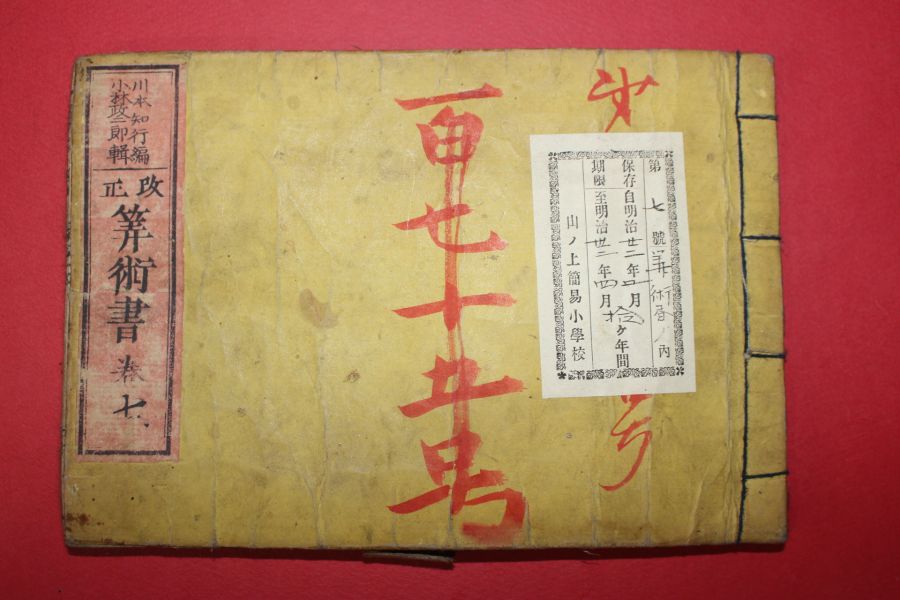 第 号
第七號筭術書ノ内
保存自明治廿二年四月
拾ケ年間
期限至明治丗二年四月
山ノ上簡易小學校
百七十五号
川本知行編
小林政二郎輯
改正
筭術書 巻七